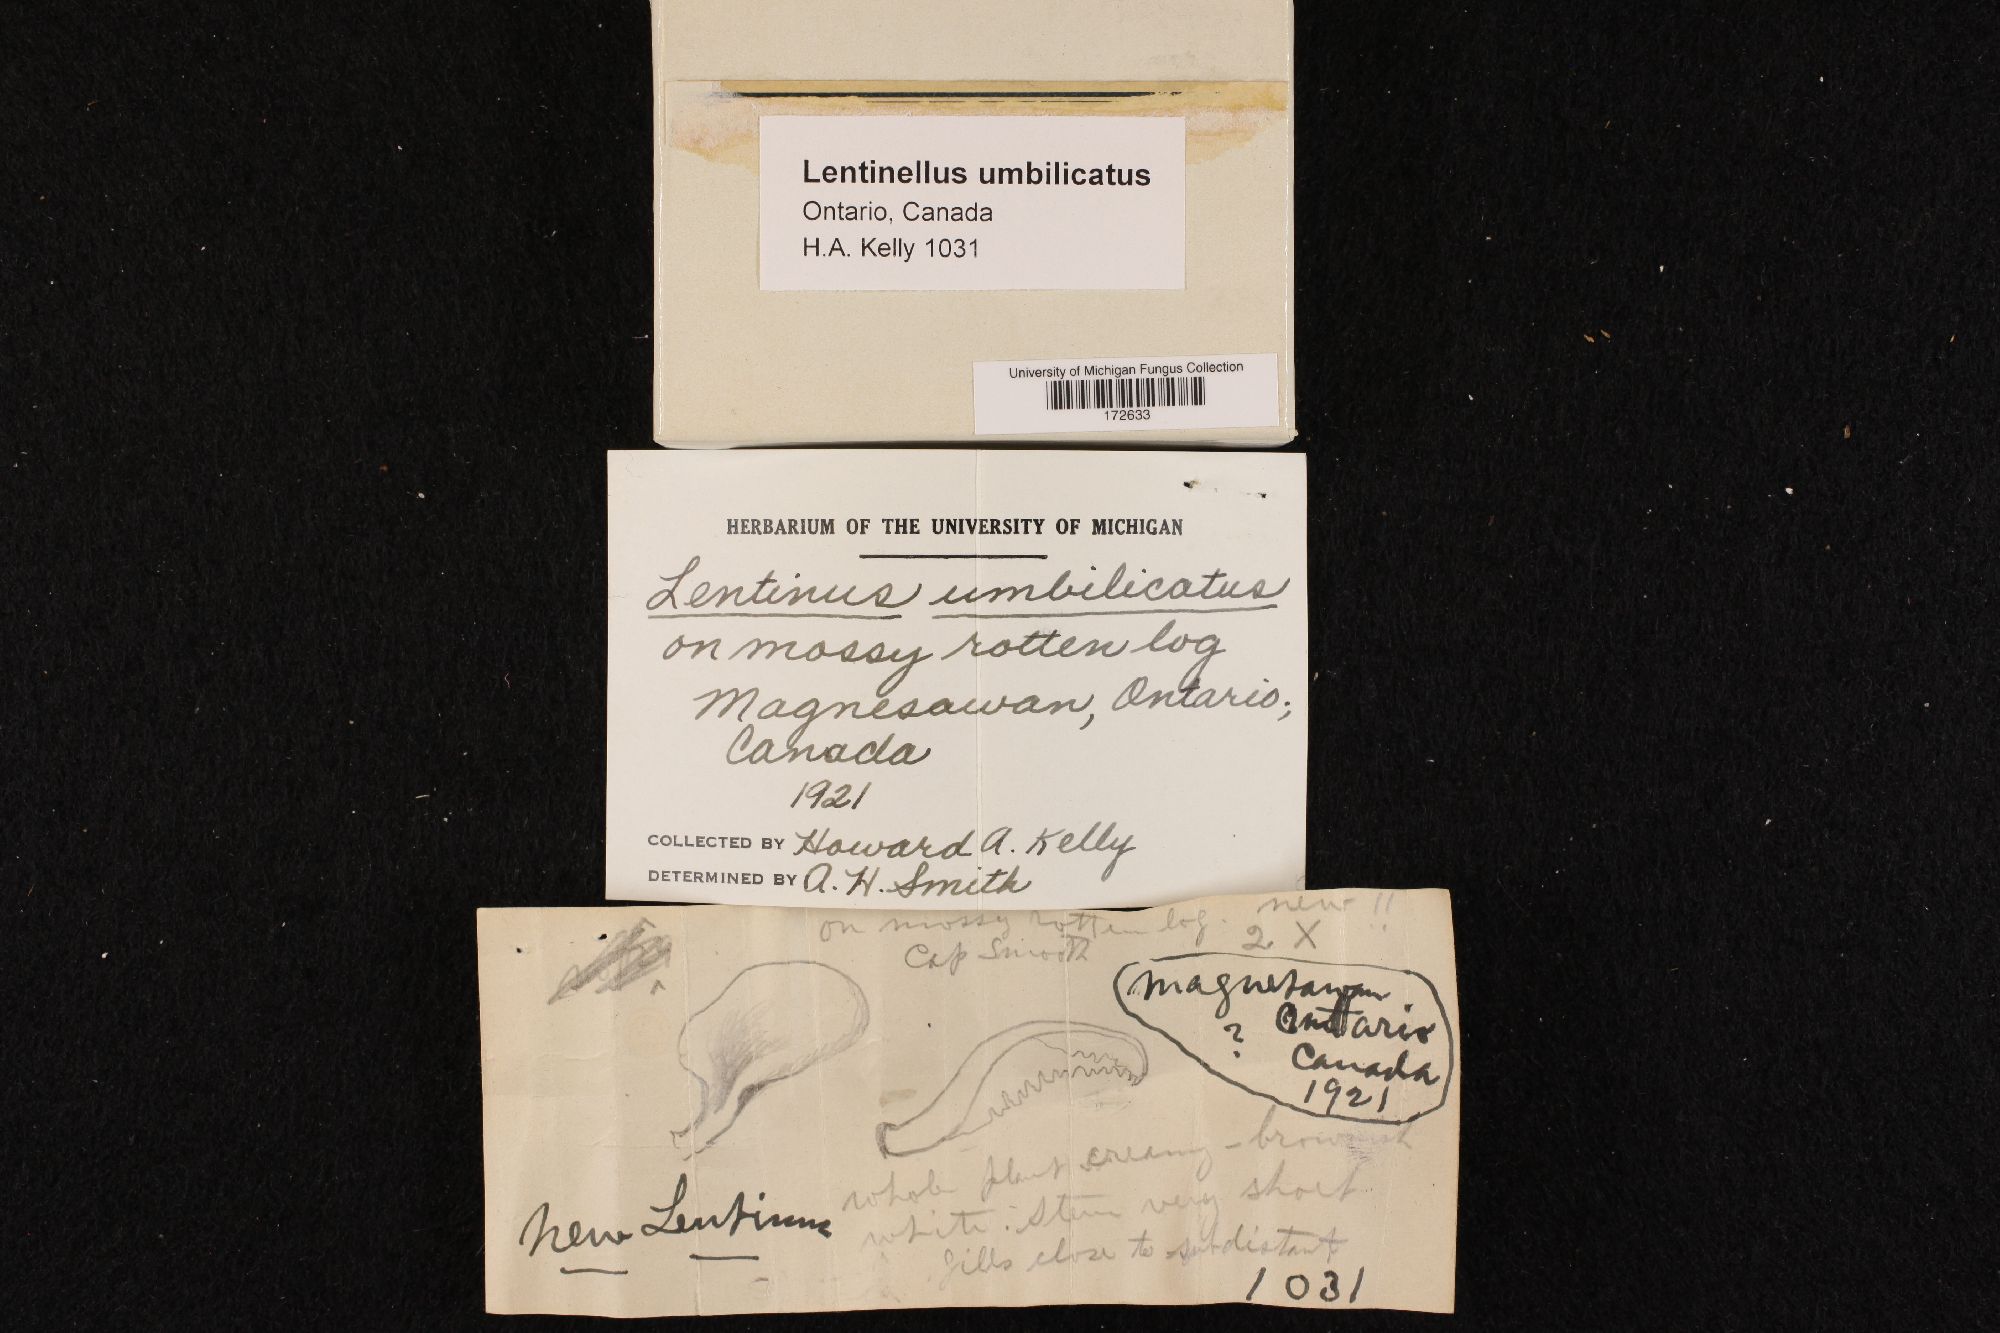 Lentinellus umbilicatus
Ontario, Canada
H.A. Kelly 1031
University of Michigan Fungus Collection
172633
HERBARIUM OF THE UNIVERSITY OF MICHIGAN
Lentinus umbilicatus
on mossy rotten log
Magnesawan, Ontario;
Canada
1921
COLLECTED BY Howard A. Kelly
DETERMINED BY A. H. Smith
on mossy rotten log. new !!
Cap smooth
2 X
Magnetawan
? Ontario
Canada
1921
whole plant creamy - brownish
white : stem very short
gills close to subdistant
new Lentinus
1031